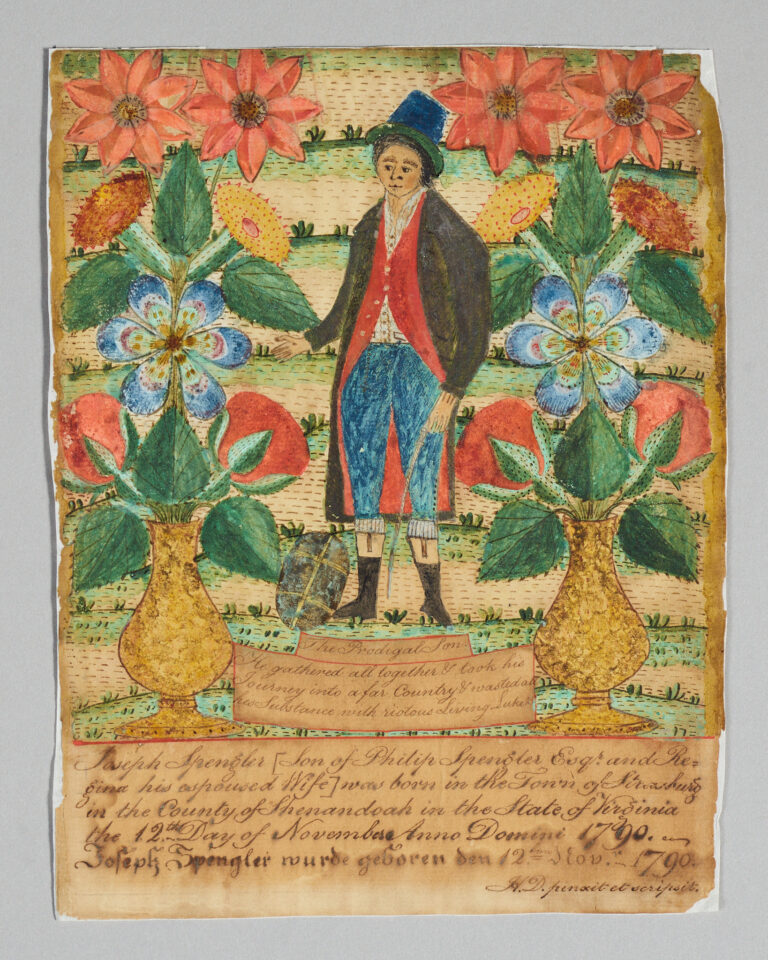 The Prodigal Son
He gathered all together & took his
Journey into a far Country & wasted all
his Substance with riotous Living Luke
Joseph Spengler [Son of Philip Spengler Esqr. and Re-
gina his espoused Wife] was born in the Town of Strasburg
in the County of Shenandoah in the State of Virginia
the 12.th Day of November Anno Domini 1790.
Joseph Spengler wurde geboren den 12.ten Nov. 1790.
H.D. pinxit et scripsit.